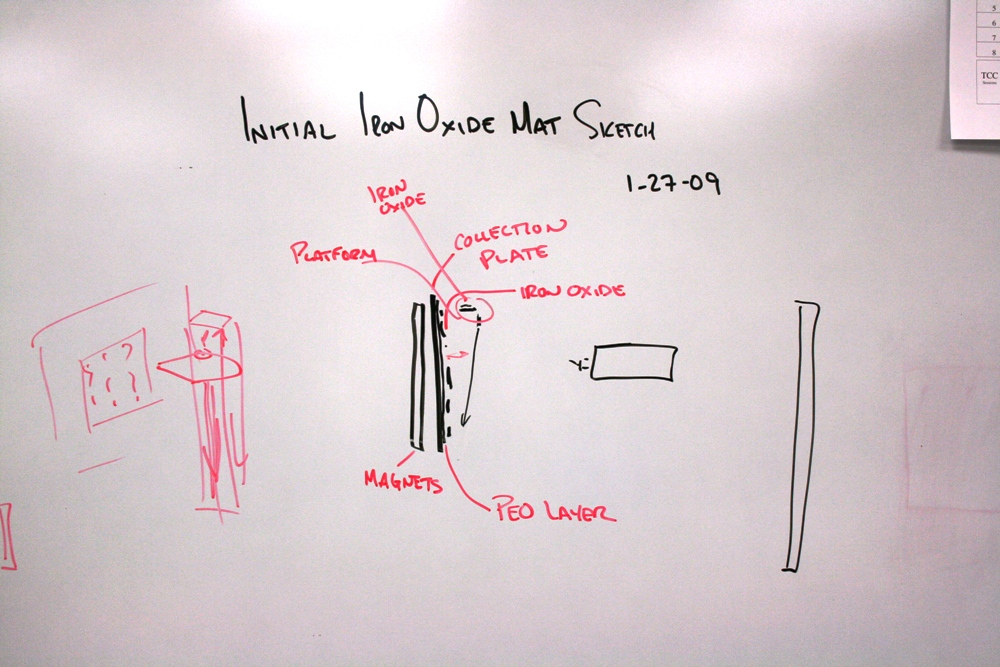 INITIAL IRON OXIDE MAT SKETCH
1-27-09
IRON
OXIDE
COLLECTION
PLATE
PLATFORM
IRON OXIDE
MAGNETS
PEO LAYER
5
6
7
8
TCC